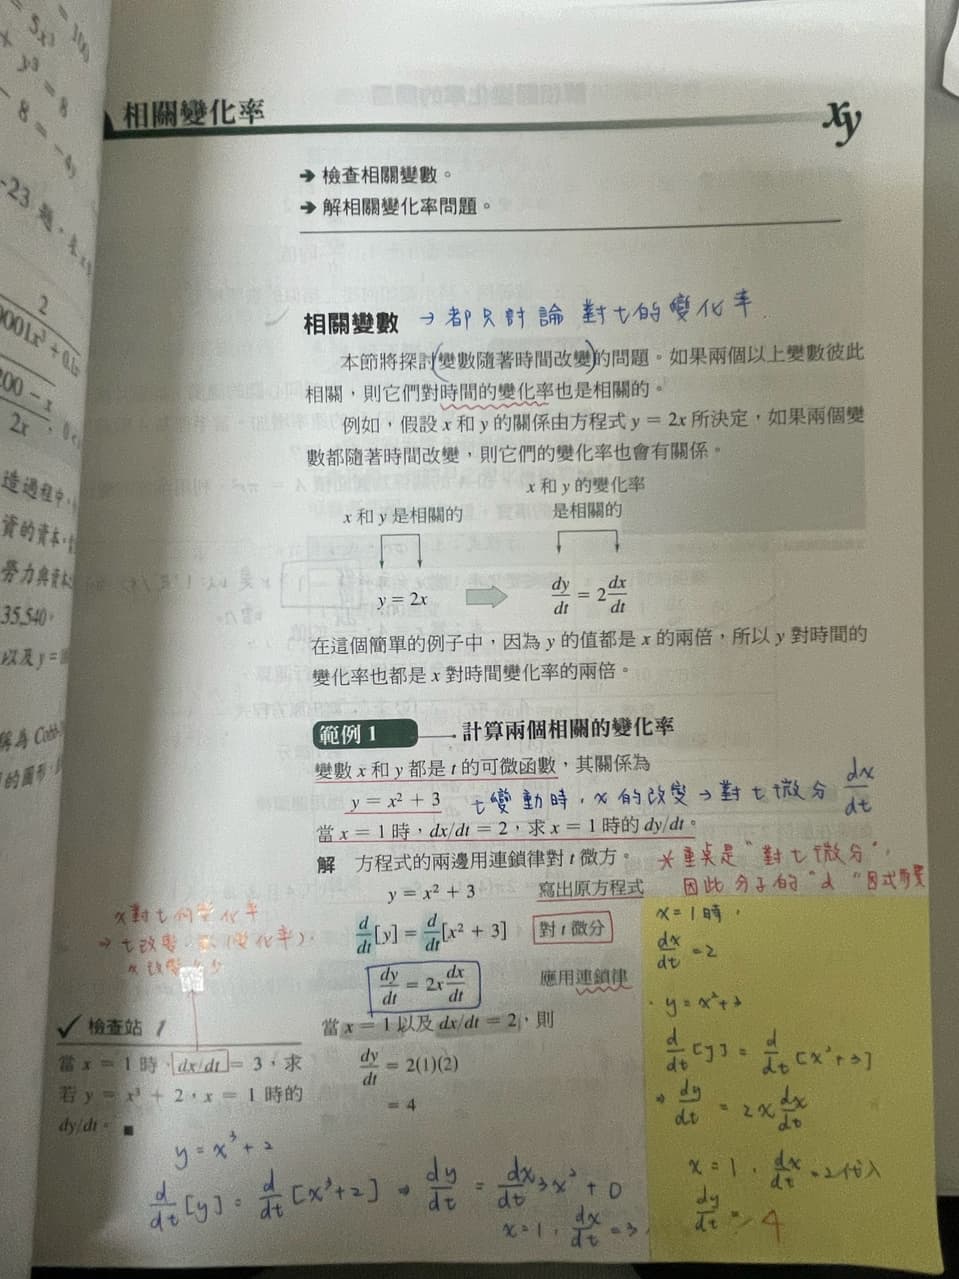 相關變化率
xy
➔ 檢查相關變數。
➔ 解相關變化率問題。
相關變數 → 都只討論 對t的變化率.
本節將探討(變數隨著時間改變)的問題。如果兩個以上變數彼此
相關,則它們對時間的變化率也是相關的。
例如,假設 x 和 y 的關係由方程式 y = 2x 所決定,如果兩個變
數都隨著時間改變,則它們的變化率也會有關係。
x 和 y 是相關的
x 和 y 的變化率
是相關的
y = 2x
dy/dt = 2 dx/dt
在這個簡單的例子中,因為 y 的值都是 x 的兩倍,所以 y 對時間的
變化率也都是 x 對時間變化率的兩倍。
範例 1 計算兩個相關的變化率
變數 x 和 y 都是 t 的可微函數,其關係為
y = x² + 3
t變動時, x的改變 → 對t微分 dx/dt
當 x = 1 時,dx/dt = 2,求 x = 1 時的 dy/dt。
解 方程式的兩邊用連鎖律對 t 微方。
*重點是"對t微分",
因此分子的"d
y = x² + 3 寫出原方程式
d/dt[y] = d/dt[x² + 3] 對 t 微分
dy/dt = 2x dx/dt 應用連鎖律
當 x = 1 以及 dx/dt = 2,則
dy/dt = 2(1)(2)
= 4
x對t的變化率
→ t改變 (變化率).
x改變多少
✓ 檢查站 1
當 x = 1 時,dx/dt = 3,求
若 y = x³ + 2,x = 1 時的
dy/dt。■
y = x³ + 2
d/dt [y] = d/dt [x³+2] ⇒ dy/dt = dx/dt 3x² + 0
x=1, dx/dt = 3
x=1時,
dx/dt = 2
y = x²+3
d/dt [y] = d/dt [x²+3]
⇒ dy/dt = 2x dx/dt
x=1, dx/dt = 2代入
dy/dt = 4
100
= 8
8 = -4y
-23 題,
2
0001x³ + 0.1x
200 − x
2x
造過程中,
資的資本,
勞力與資本
35,540。
以及 y =
稱為 Cobb-
的圖形,